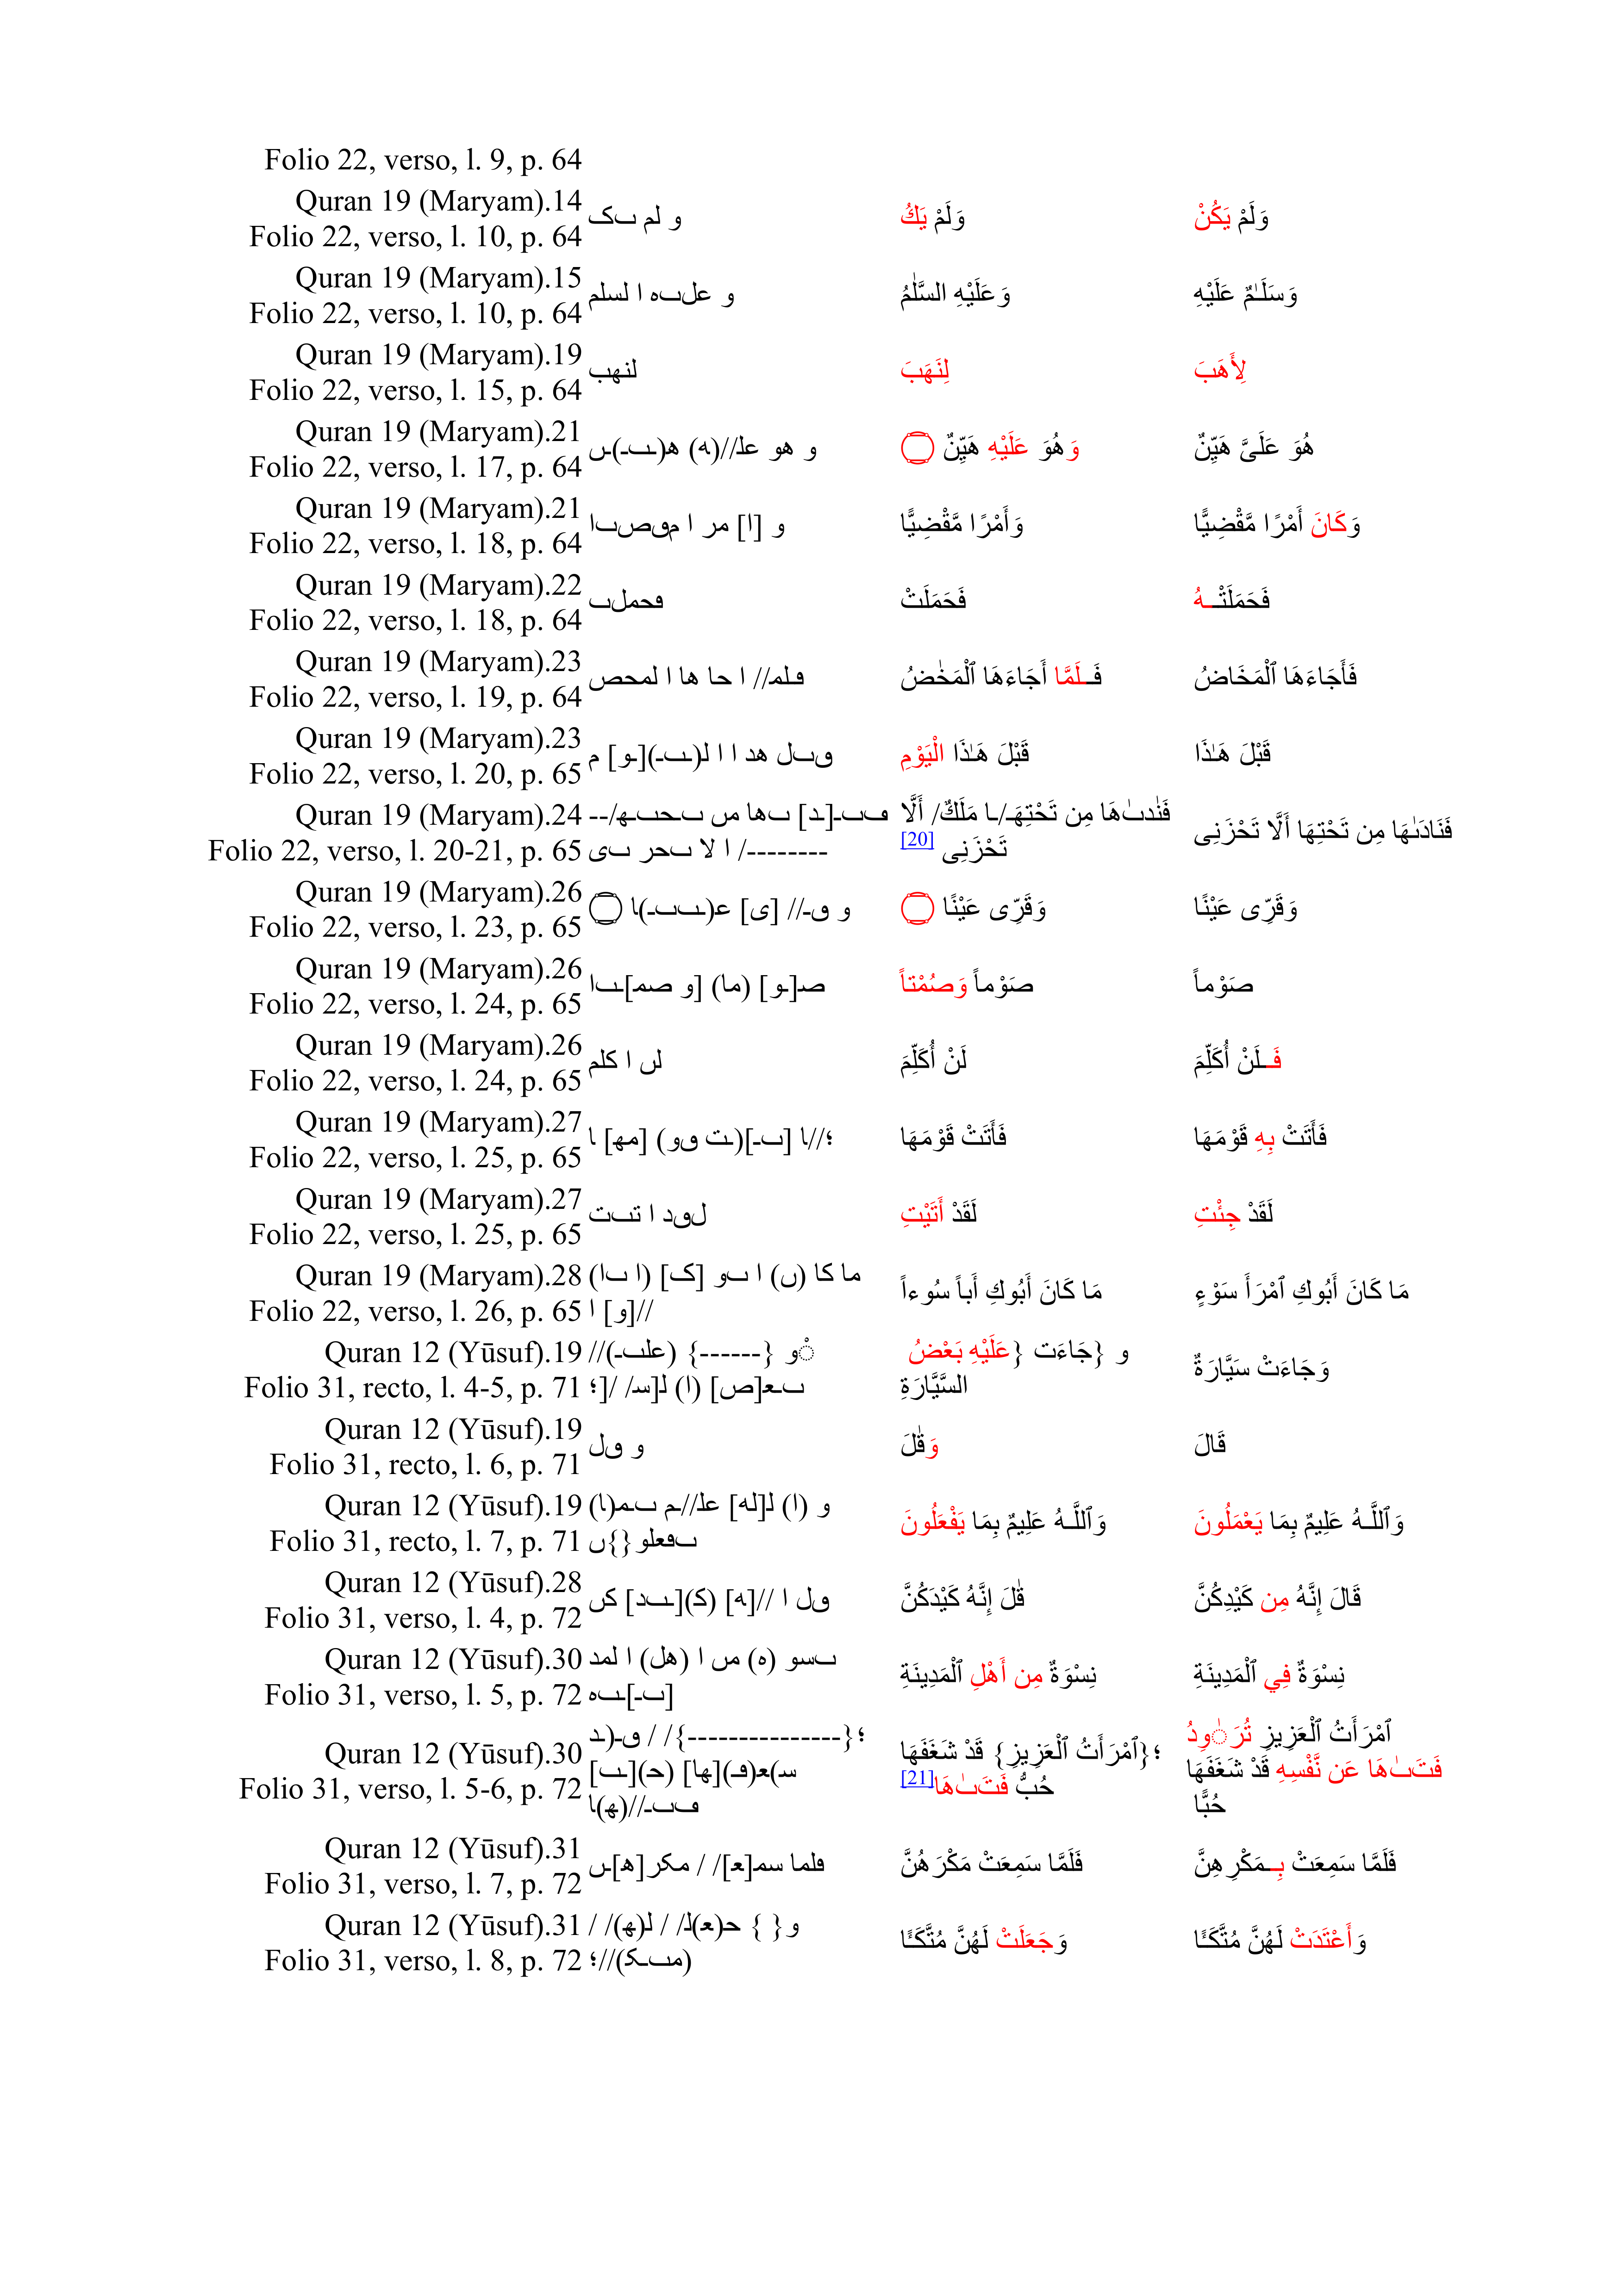 Folio 22, verso, l. 9, p. 64
Quran 19 (Maryam).14
Folio 22, verso, l. 10, p. 64
و لم ٮک
وَلَمْ يَكُ
وَلَمْ يَكُنْ
Quran 19 (Maryam).15
Folio 22, verso, l. 10, p. 64
و علٮه ا لسلم
وَعَلَيْهِ السَّلَٰمُ
وَسَلَـٰمٌ عَلَيْهِ
Quran 19 (Maryam).19
Folio 22, verso, l. 15, p. 64
لنهب
لِنَهَبَ
لِأَهَبَ
Quran 19 (Maryam).21
Folio 22, verso, l. 17, p. 64
و هو علـ//(ه) هـ(ـٮـ)ـں
وَهُوَ عَلَيْهِ هَيِّنٌ ۝
هُوَ عَلَىَّ هَيِّنٌ
Quran 19 (Maryam).21
Folio 22, verso, l. 18, p. 64
و [ا] مر ا مٯصٮا
وَأَمْرًا مَّقْضِيًّا
وَكَانَ أَمْرًا مَّقْضِيًّا
Quran 19 (Maryam).22
Folio 22, verso, l. 18, p. 64
فحملٮ
فَحَمَلَتْ
فَحَمَلَتْـهُ
Quran 19 (Maryam).23
Folio 22, verso, l. 19, p. 64
فـلمـ// ا حا ها ا لمحص
فَـلَمَّا أَجَاءَهَا ٱلْمَخَٰضُ
فَأَجَاءَهَا ٱلْمَخَاضُ
Quran 19 (Maryam).23
Folio 22, verso, l. 20, p. 65
ٯٮل هد ا ا لـ(ـٮـ)[ـو] م
قَبْلَ هَـٰذَا الْيَوْمِ
قَبْلَ هَـٰذَا
Quran 19 (Maryam).24
Folio 22, verso, l. 20-21, p. 65
ڡٮـ[ـد] ٮها مں ٮحٮهـ/--
--------/ ا لا ٮحر ٮى
فَنَٰدىٰهَا مِن تَحْتِهَـ/ـا مَلَكٌ/ أَلَّا
تَحْزَنِى [20]
فَنَادَىٰهَا مِن تَحْتِهَا أَلَّا تَحْزَنِى
Quran 19 (Maryam).26
Folio 22, verso, l. 23, p. 65
و ٯـ// [ى] عـ(ـٮٮـ)ـا ۝
وَقَرِّى عَيْنًا ۝
وَقَرِّى عَيْنًا
Quran 19 (Maryam).26
Folio 22, verso, l. 24, p. 65
صـ[ـو] (ما) [و صمـ]ـٮا
صَوْماً وَصُمْتاً
صَوْماً
Quran 19 (Maryam).26
Folio 22, verso, l. 24, p. 65
لں ا كلم
لَنْ أُكَلِّمَ
فَـلَنْ أُكَلِّمَ
Quran 19 (Maryam).27
Folio 22, verso, l. 25, p. 65
؛//ـا [ٮـ](ـت ٯو) [مهـ] ـا
فَأَتَتْ قَوْمَهَا
فَأَتَتْ بِهِ قَوْمَهَا
Quran 19 (Maryam).27
Folio 22, verso, l. 25, p. 65
لٯد ا تٮت
لَقَدْ أَتَيْتِ
لَقَدْ جِئْتِ
Quran 19 (Maryam).28
Folio 22, verso, l. 26, p. 65
ما كا (ں) ا ٮو [ک] (ا ٮا)
//[و] ا
مَا كَانَ أَبُوكِ أَباً سُوءاً
مَا كَانَ أَبُوكِ ٱمْرَأَ سَوْءٍ
Quran 12 (Yūsuf).19
Folio 31, recto, l. 4-5, p. 71
ْو {------} (علٮـ)//
ٮعـ[ص] (ا) لـ[سـ/ /]؛
و {جَاءَت {عَلَيْهِ بَعْضُ
السَّيَّارَةِ
وَجَاءَتْ سَيَّارَةٌ
Quran 12 (Yūsuf).19
Folio 31, recto, l. 6, p. 71
و ٯل
وَقَٰلَ
قَالَ
Quran 12 (Yūsuf).19
Folio 31, recto, l. 7, p. 71
و (ا) لـ[له] علـ//ـم ٮمـ(ـا)
ٮفعلو{}ں
وَٱللَّـهُ عَلِيمٌ بِمَا يَفْعَلُونَ
وَٱللَّـهُ عَلِيمٌ بِمَا يَعْمَلُونَ
Quran 12 (Yūsuf).28
Folio 31, verso, l. 4, p. 72
ٯل ا //[ه] (كـ)[ـٮد] كں
قَٰلَ إِنَّهُ كَيْدَكُنَّ
قَالَ إِنَّهُ مِن كَيْدِكُنَّ
Quran 12 (Yūsuf).30
Folio 31, verso, l. 5, p. 72
ٮسو (ه) مں ا (هل) ا لمد
[ٮـ]ـٮه
نِسْوَةٌ مِن أَهْلِ ٱلْمَدِينَةِ
نِسْوَةٌ فِي ٱلْمَدِينَةِ
Quran 12 (Yūsuf).30
Folio 31, verso, l. 5-6, p. 72
؛{---------------}/ / ٯـ(ـد
سـ)عـ(فـ)[ـها] (حـ)[ـٮ]
ڡٮـ//(هـ)ـا
؛{ٱمْرَأَتُ ٱلْعَزِيزِ} قَدْ شَغَفَهَا
حُبُّ فَتَىٰهَا[21]
ٱمْرَأَتُ ٱلْعَزِيزِ تُرَٰوِدُ
فَتَىٰهَا عَن نَّفْسِهِ قَدْ شَغَفَهَا
حُبًّا
Quran 12 (Yūsuf).31
Folio 31, verso, l. 7, p. 72
فلما سمـ[ـعـ]/ / مكر[هـ]ـں
فَلَمَّا سَمِعَتْ مَكْرَهُنَّ
فَلَمَّا سَمِعَتْ بِـمَكْرِهِنَّ
Quran 12 (Yūsuf).31
Folio 31, verso, l. 8, p. 72
و{ } حـ(ـعـ)لـ/ / لـ(ـهـ)/ /
(مٮـكـ)//؛
وَجَعَلَتْ لَهُنَّ مُتَّكَـًٔا
وَأَعْتَدَتْ لَهُنَّ مُتَّكَـًٔا